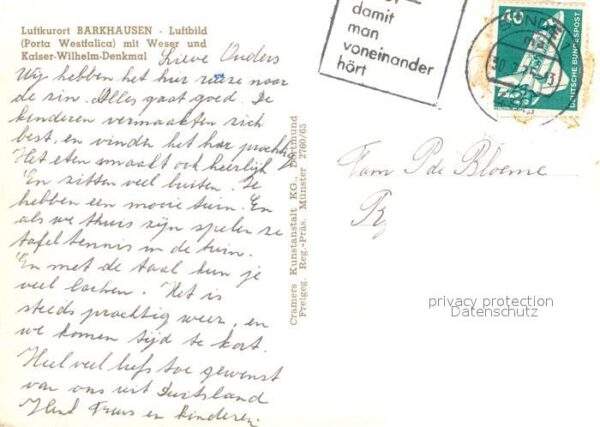 Luftkurort BARKHAUSEN - Luftbild
(Porta Westfalica) mit Weser und
Kaiser-Wilhelm-Denkmal
Lieve Ouders
Wij hebben het hier reuze naar
de zin. Alles gaat goed. De
kinderen vermaakten zich
best, en vinden het hier prachtig
Het eten smaakt ook heerlijk
En zitten veel buiten. Ze
hebben een mooie tuin. En
als we thuis zijn spelen ze
tafeltennis in de tuin.
En met de taal kun je
veel lachen. Het is
steeds prachtig weer, en
we komen tijd te kort.
Heel veel liefs toe gewenst
van ons uit Duitsland
Truus en kinderen
Cramers Kunstanstalt KG., Dortmund
Freigeg. Reg.-Präs. Münster 2760/65
damit
man
voneinander
hört
BÜNDE
40
DEUTSCHE BUNDESPOST
Fam P de Bloeme
privacy protection
Datenschutz